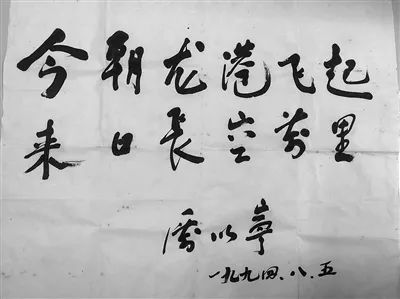 今朝龙港飞起
来日長空万里
厉以宁
一九九四.八.五